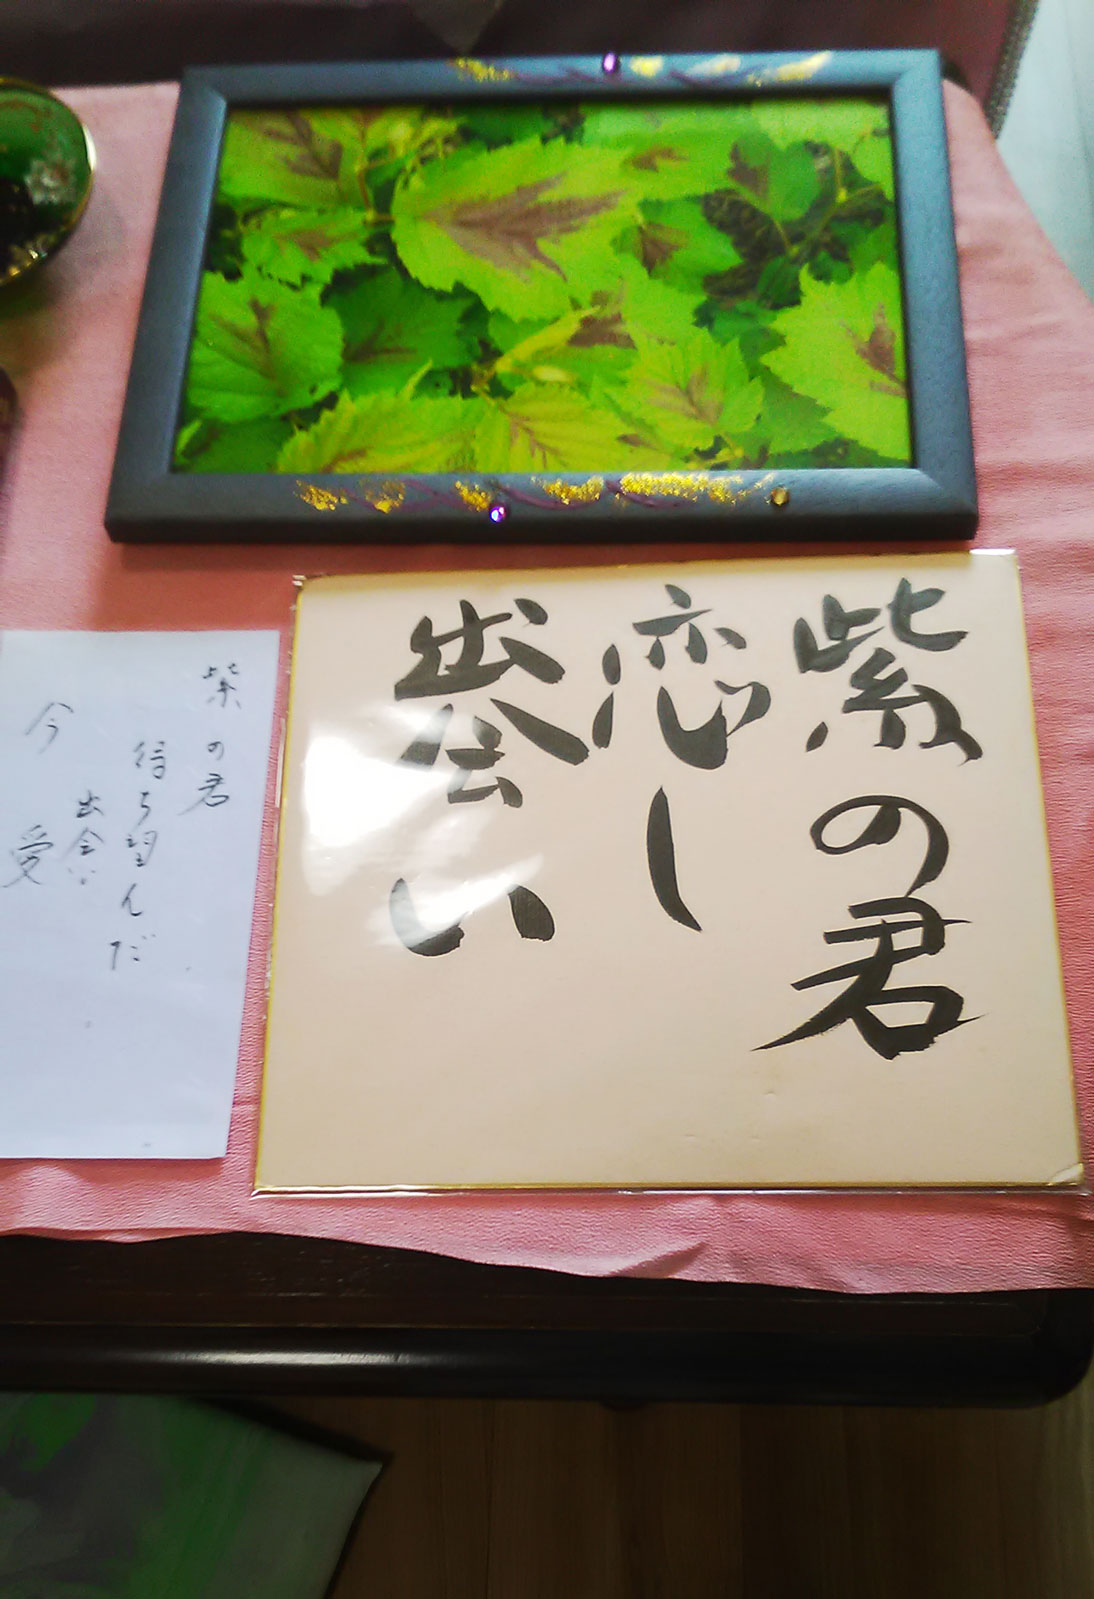 紫の君
恋し
出会い
紫の君
待ち望んだ
出会い
今 愛